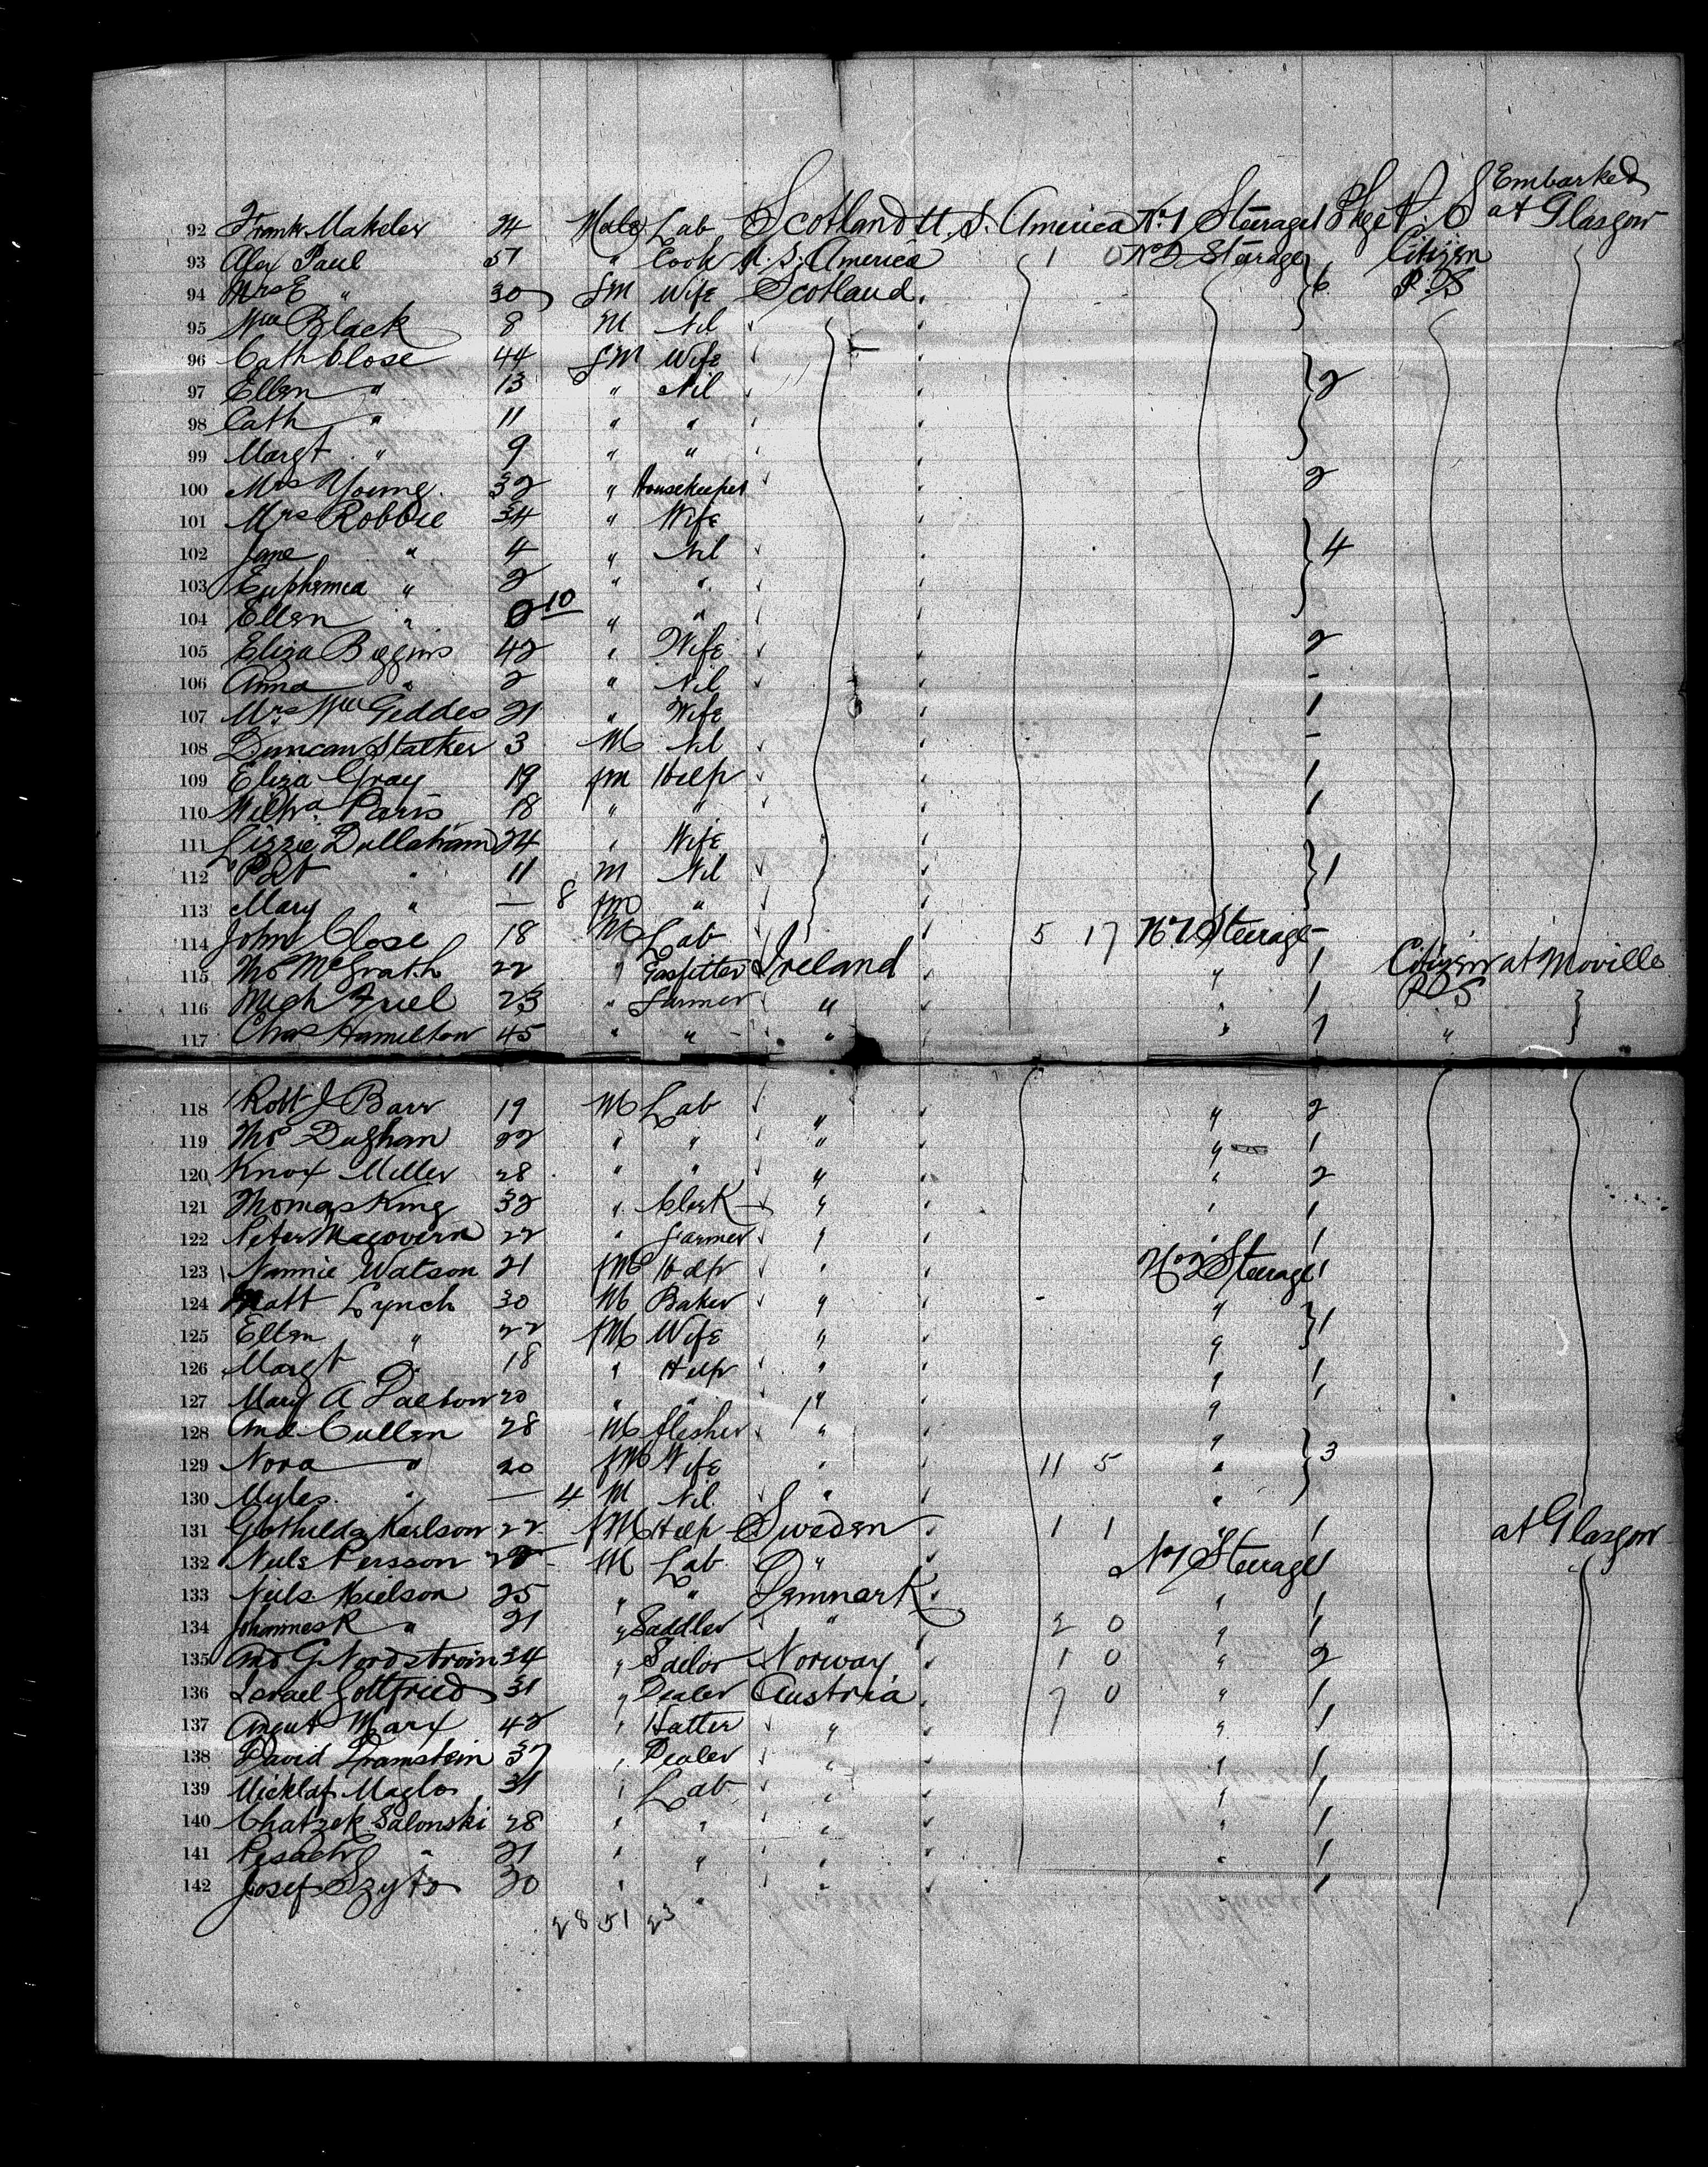 Embarked
92 Frank Makeler 24 Male Lab Scotland U.S. America No 1 Steerage 1 Pkge P.S at Glasgow
93 Alex Paul 37 " Cook U.S. America 1 0 No 2 Steerage Citizen
94 Mrs E " 30 fm Wife Scotland 6 P.S
95 Wm Black 8 M Nil
96 Cath Close 44 fM Wife
97 Ellen " 13 " Nil 2
98 Cath " 11 " "
99 Margt " 9 " "
100 Mrs Young 32 " Housekeeper 2
101 Mrs Robbie 34 " Wife
102 Jane " 4 " Nil 4
103 Euphemea " 2 " "
104 Ellen " 10 " "
105 Eliza Biggins 42 " Wife 2
106 Anna " 2 " Nil -
107 Mrs Wm Geddes 21 " Wife 1
108 Duncan Stalker 3 M Nil -
109 Eliza Gray 19 fm Help 1
110 Wilha Paris 18 " " 1
111 Lizzie Dullaham 24 " Wife
112 Pat " 11 M Nil 1
113 Mary " — 8 fm "
114 John Close 18 M Lab 5 17 No 1 Steerage -
115 Ths McGrath 22 " Gasfitter Ireland " 1 Citizen at Moville
116 Mich Friel 23 " Farmer " " 1 P.S
117 Chas Hamilton 45 " " " " 1 "
118 Robt J Barr 19 M Lab " " 2
119 Ths Dugham 22 " " " " 1
120 Knox Miller 28 " " " " 2
121 Thomas King 32 " Clerk " " 1
122 Peter Magovern 22 " Farmer " " 1
123 Nannie Watson 21 fM Help " No 2 Steerage 1
124 Matt Lynch 30 M Baker " "
125 Ellen " 22 fM Wife " " 1
126 Margt " 18 " Help " " 1
127 Mary A Dalton 20 " " " " 1
128 And Cullen 28 M Flesher " "
129 Nora " 20 fM Wife " 11 5 " 3
130 Myles " — 4 M Nil " "
131 Gothilda Karlson 22 fM Help Sweden 1 1 " 1 at Glasgow
132 Nils Persson M Lab " No 1 Steerage 1
133 Niels Nielson 25 " " Denmark " 1
134 Johannes K " 21 " Saddler " 2 0 " 1
135 And G Nordstrom 24 " Sailor Norway 1 0 " 2
136 Israel Gottfried 31 " Dealer Austria 7 0 " 1
137 August Marx 42 " Hatter " " 1
138 David Dramstein 37 " Dealer " " 1
139 Micklaf Mazlo 31 " Lab " " 1
140 Chatzek Salonski 28 " " " " 1
141 Pesach " 21 " " " " 1
142 Josef Szyto 30 " " " " 1
28 51 23